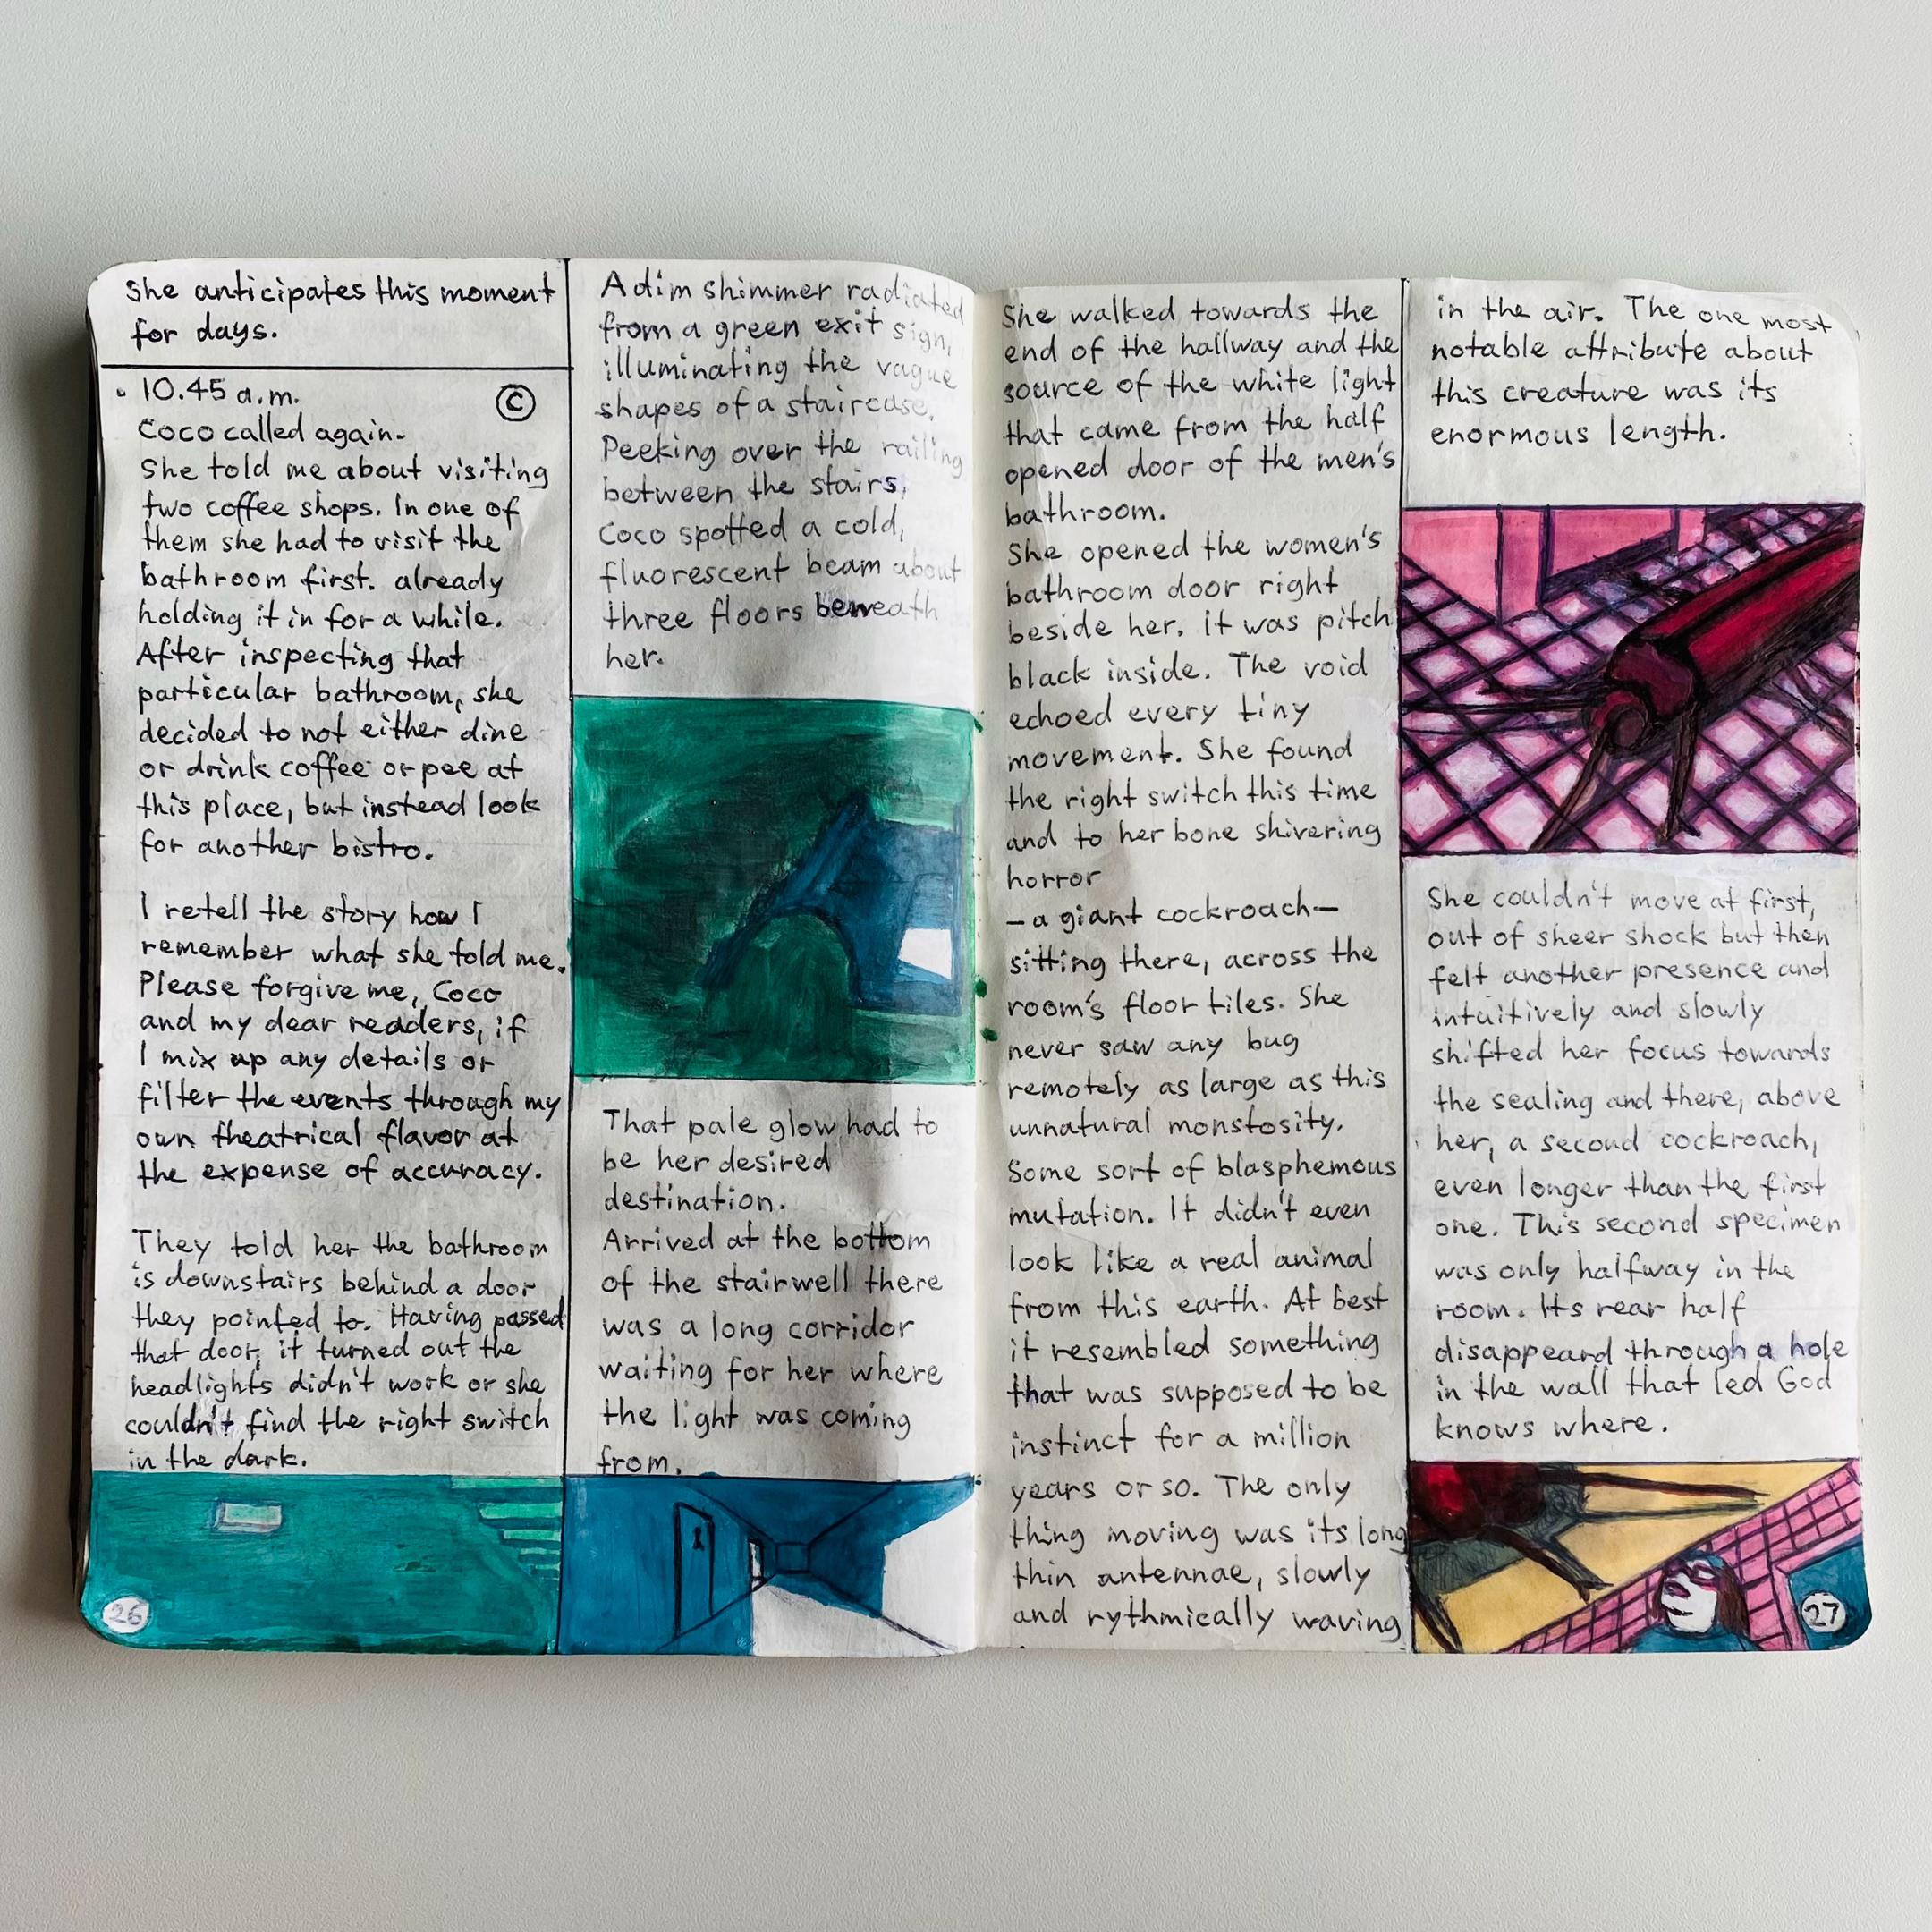 She anticipates this moment
for days.
• 10.45 a.m.
©
Coco called again.
She told me about visiting
two coffee shops. In one of
them she had to visit the
bathroom first. already
holding it in for a while.
After inspecting that
particular bathroom, she
decided to not either dine
or drink coffee or pee at
this place, but instead look
for another bistro.
I retell the story how I
remember what she told me.
Please forgive me, Coco
and my dear readers, if
I mix up any details or
filter the events through my
own theatrical flavor at
the expense of accuracy.
They told her the bathroom
is downstairs behind a door
they pointed to. Having passed
that door, it turned out the
headlights didn't work or she
couldn't find the right switch
in the dark.
26
A dim shimmer radiated
from a green exit sign,
illuminating the vague
shapes of a staircase.
Peeking over the railing
between the stairs,
Coco spotted a cold,
fluorescent beam about
three floors beneath
her.
That pale glow had to
be her desired
destination.
Arrived at the bottom
of the stairwell there
was a long corridor
waiting for her where
the light was coming
from.
She walked towards the
end of the hallway and the
source of the white light
that came from the half
opened door of the men's
bathroom.
She opened the women's
bathroom door right
beside her. It was pitch
black inside. The void
echoed every tiny
movement. She found
the right switch this time
and to her bone shivering
horror
—a giant cockroach—
sitting there, across the
room's floor tiles. She
never saw any bug
remotely as large as this
unnatural monstosity.
Some sort of blasphemous
mutation. It didn't even
look like a real animal
from this earth. At best
it resembled something
that was supposed to be
instinct for a million
years or so. The only
thing moving was its long
thin antennae, slowly
and rythmically waving
in the air. The one most
notable attribute about
this creature was its
enormous length.
She couldn't move at first,
out of sheer shock but then
felt another presence and
intuitively and slowly
shifted her focus towards
the sealing and there, above
her, a second cockroach,
even longer than the first
one. This second specimen
was only halfway in the
room. Its rear half
disappeard through a hole
in the wall that led God
knows where.
27